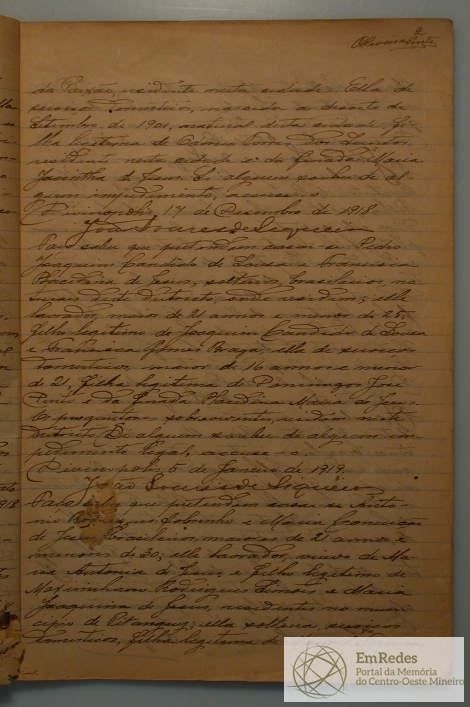 2
Oliveira Pinto
da Paixão, residente nesta cidade. Ella de
serviços domesticos, nascida a desete de
Setembro de 1901, natural desta cidade, fi-
lha legitima de Dos Santos,
residente nesta cidade e da finada Maria
Jacintha de Jesus. Si alguem souber de al-
gum impedimento, accuse-o.
Divinopolis, 17 de Dezembro de 1918.
João Soares de Siqueira
Faço saber que pretendem casar-se Pedro
Joaquim Candido de Sousa e Francisca
de Jesus, solteiros, brasileiros, na-
turaes deste districto, onde residem; elle
lavrador, maior de 21 annos e menor de 25,
filho legitimo de Joaquim Candido de Sousa
e Francisca Gomes Braga; ella de serviços
domesticos, maior de 16 annos e menor
de 21, filha legitima de Domingos José
Pinto e da finada Maria de Jesus.
O progenitor sobrevivente, reside neste
districto. Si alguem souber de algum im-
pedimento legal, accuse-o.
Divinopolis, 5 de Janeiro de 1919.
João Soares de Siqueira
Faço que pretendem casar-se Anto-
nio Rodrigues Sobrinho e Maria Conceição
de Jesus, brasileiros, maiores de 21 annos e
menores de 30; elle lavrador, viuvo de Ma-
ria Antonia de Jesus, e filho legitimo de
Maximiano Rodrigues Simões e Maria
Joaquina de Jesus, residentes no muni-
cipio de Pitanguy; ella solteira, serviços
domesticos, filha legitima de
EmRedes
Portal da Memória
do Centro-Oeste Mineiro